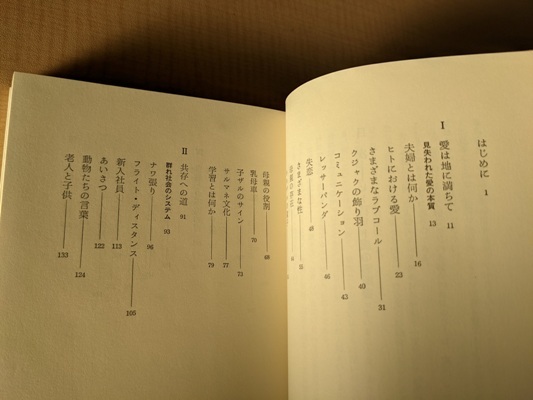 はじめに 1
I 愛は地に満ちて 11
見失われた愛の本質 13
夫婦とは何か 16
ヒトにおける愛 23
さまざまなラブコール 31
クジャクの飾り羽 40
コミュニケーション 43
レッサーパンダ 46
失恋 48
さまざまな性
母親の役割 68
乳母車 70
子ザルのサイン 73
サルマネ文化 77
学習とは何か 79
II 共存への道 91
群れ社会のシステム 93
ナワ張り 96
フライト・ディスタンス 105
新入社員 113
あいさつ 122
動物たちの言葉 124
老人と子供 133